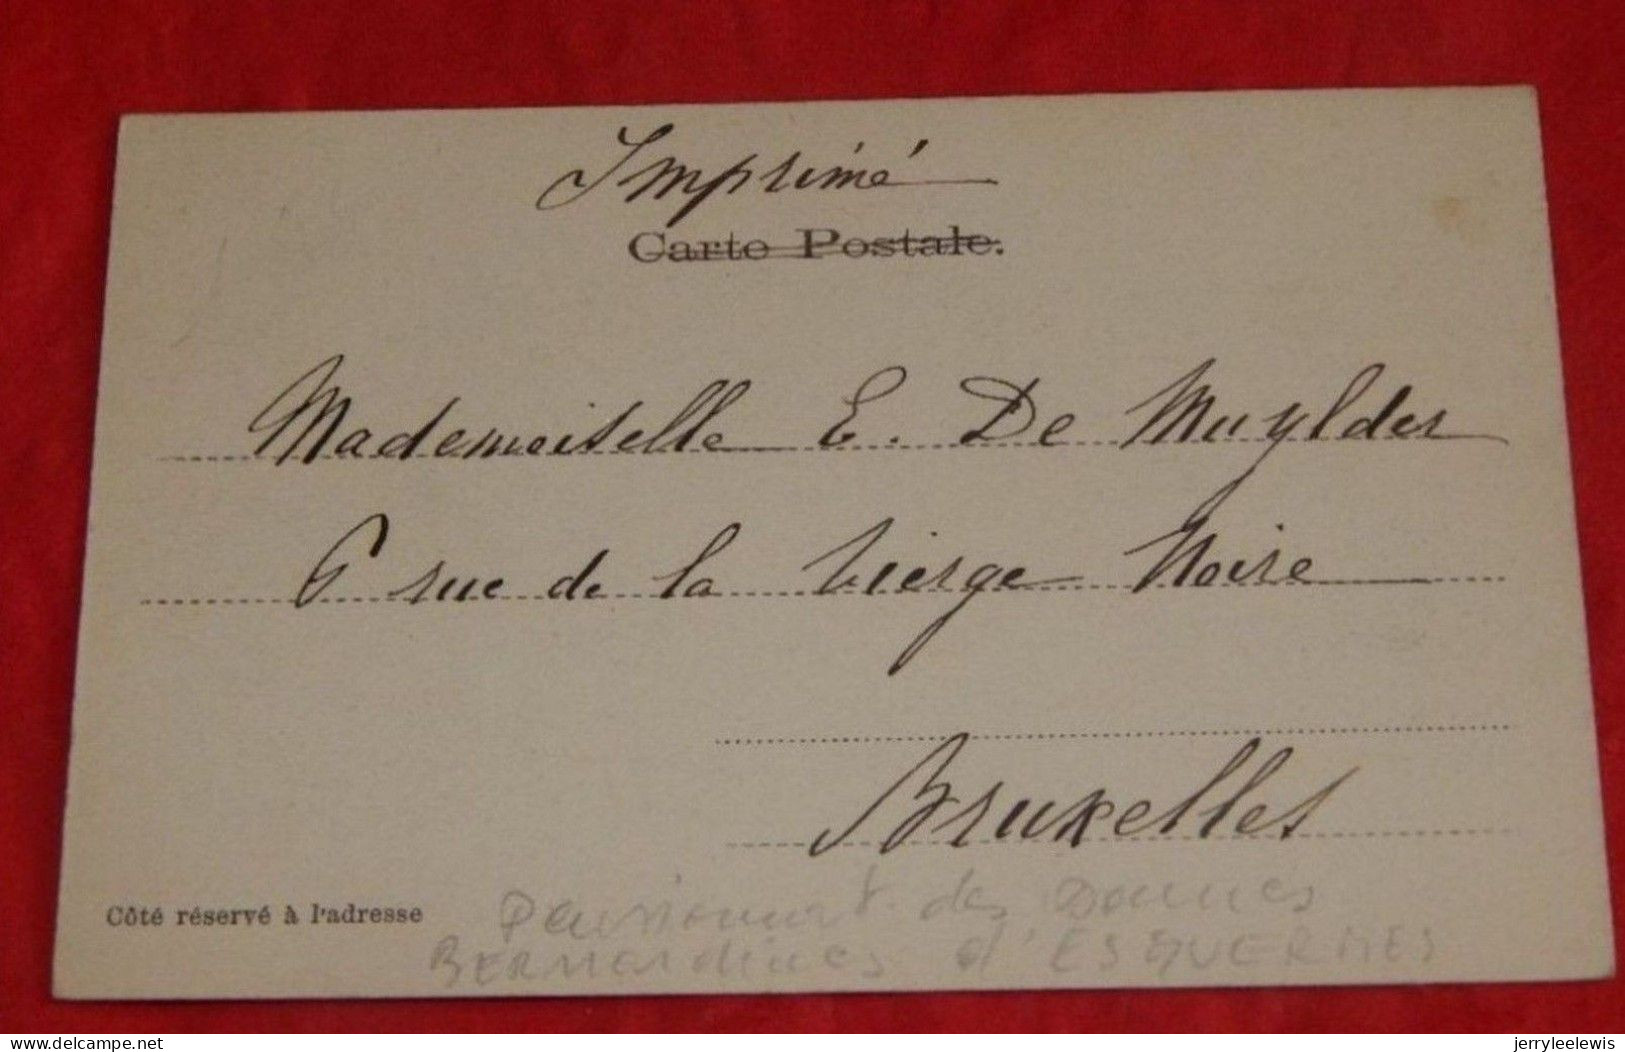 Imprimé
Carte Postale.
Mademoiselle E. De Muylder
6 rue de la Vierge Noire
Bruxelles
Côté réservé à l'adresse
Pensionnat des Dames
BERNardines d'ESQUERMES
delcampe.net
jerryleelewis